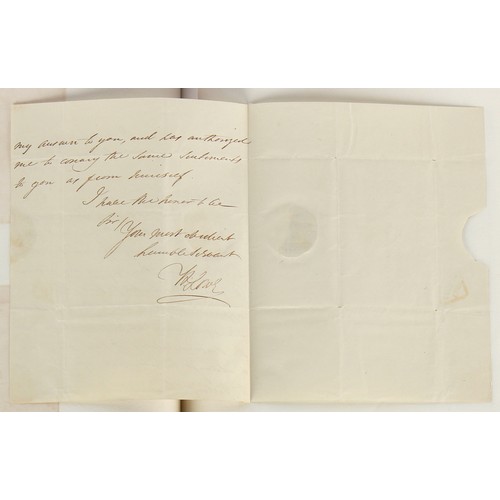 my answer to you, and has authorized
me to convey the same sentiments
to you as from himself
I have the honor to be
Sir / Your most obedient
humble Servant